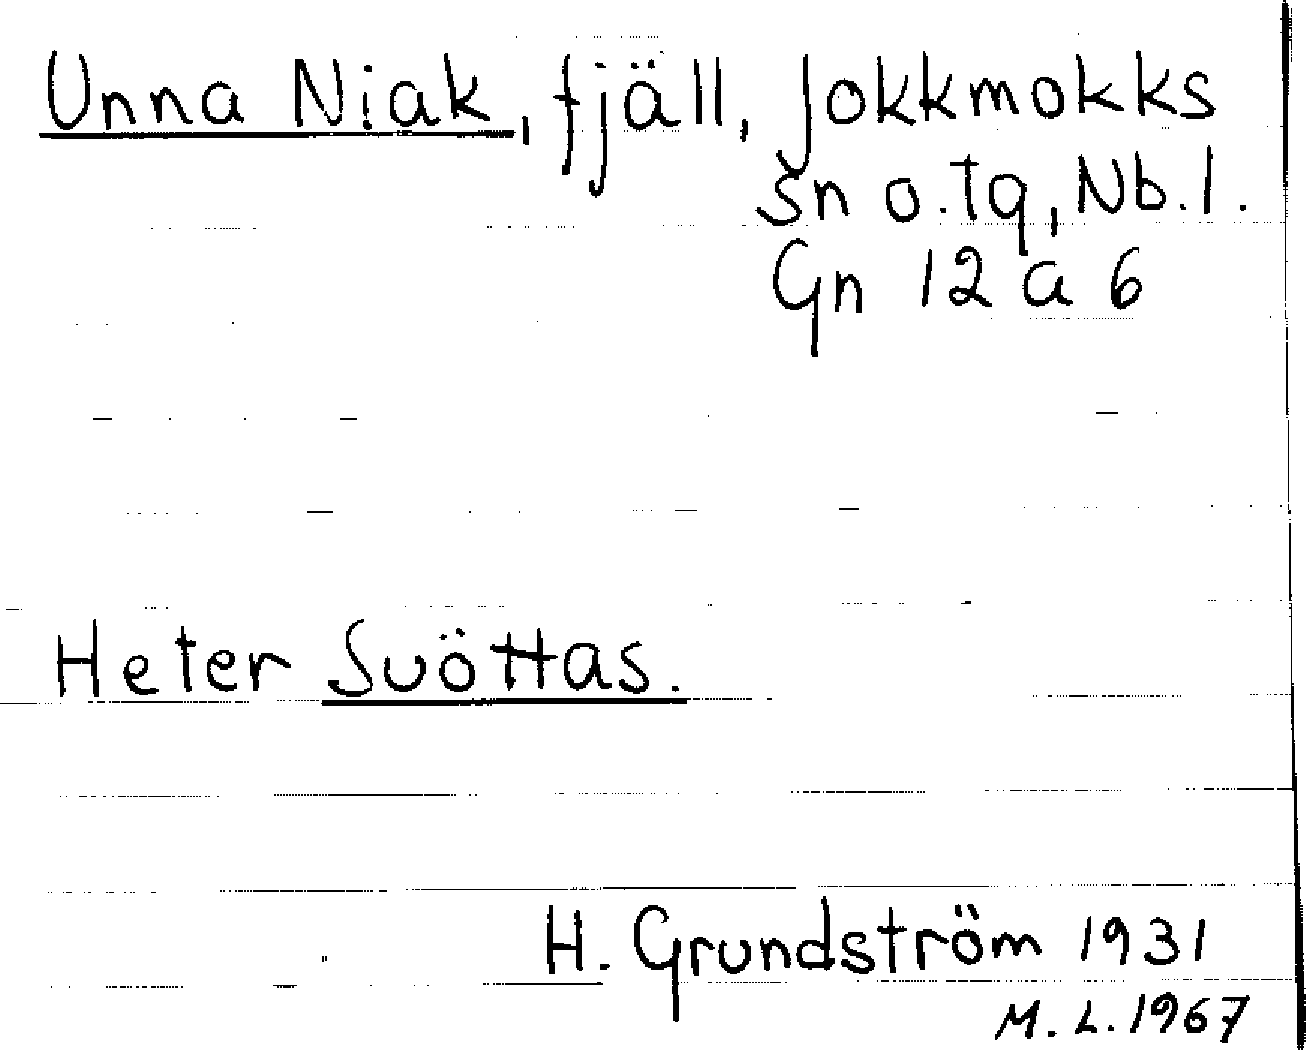 Unna Niak, fjäll, Jokkmokks
sn o. tg, Nb. l.
Gn 12 a 6
Heter Suöttas.
H. Grundström 1931
M. L. 1967